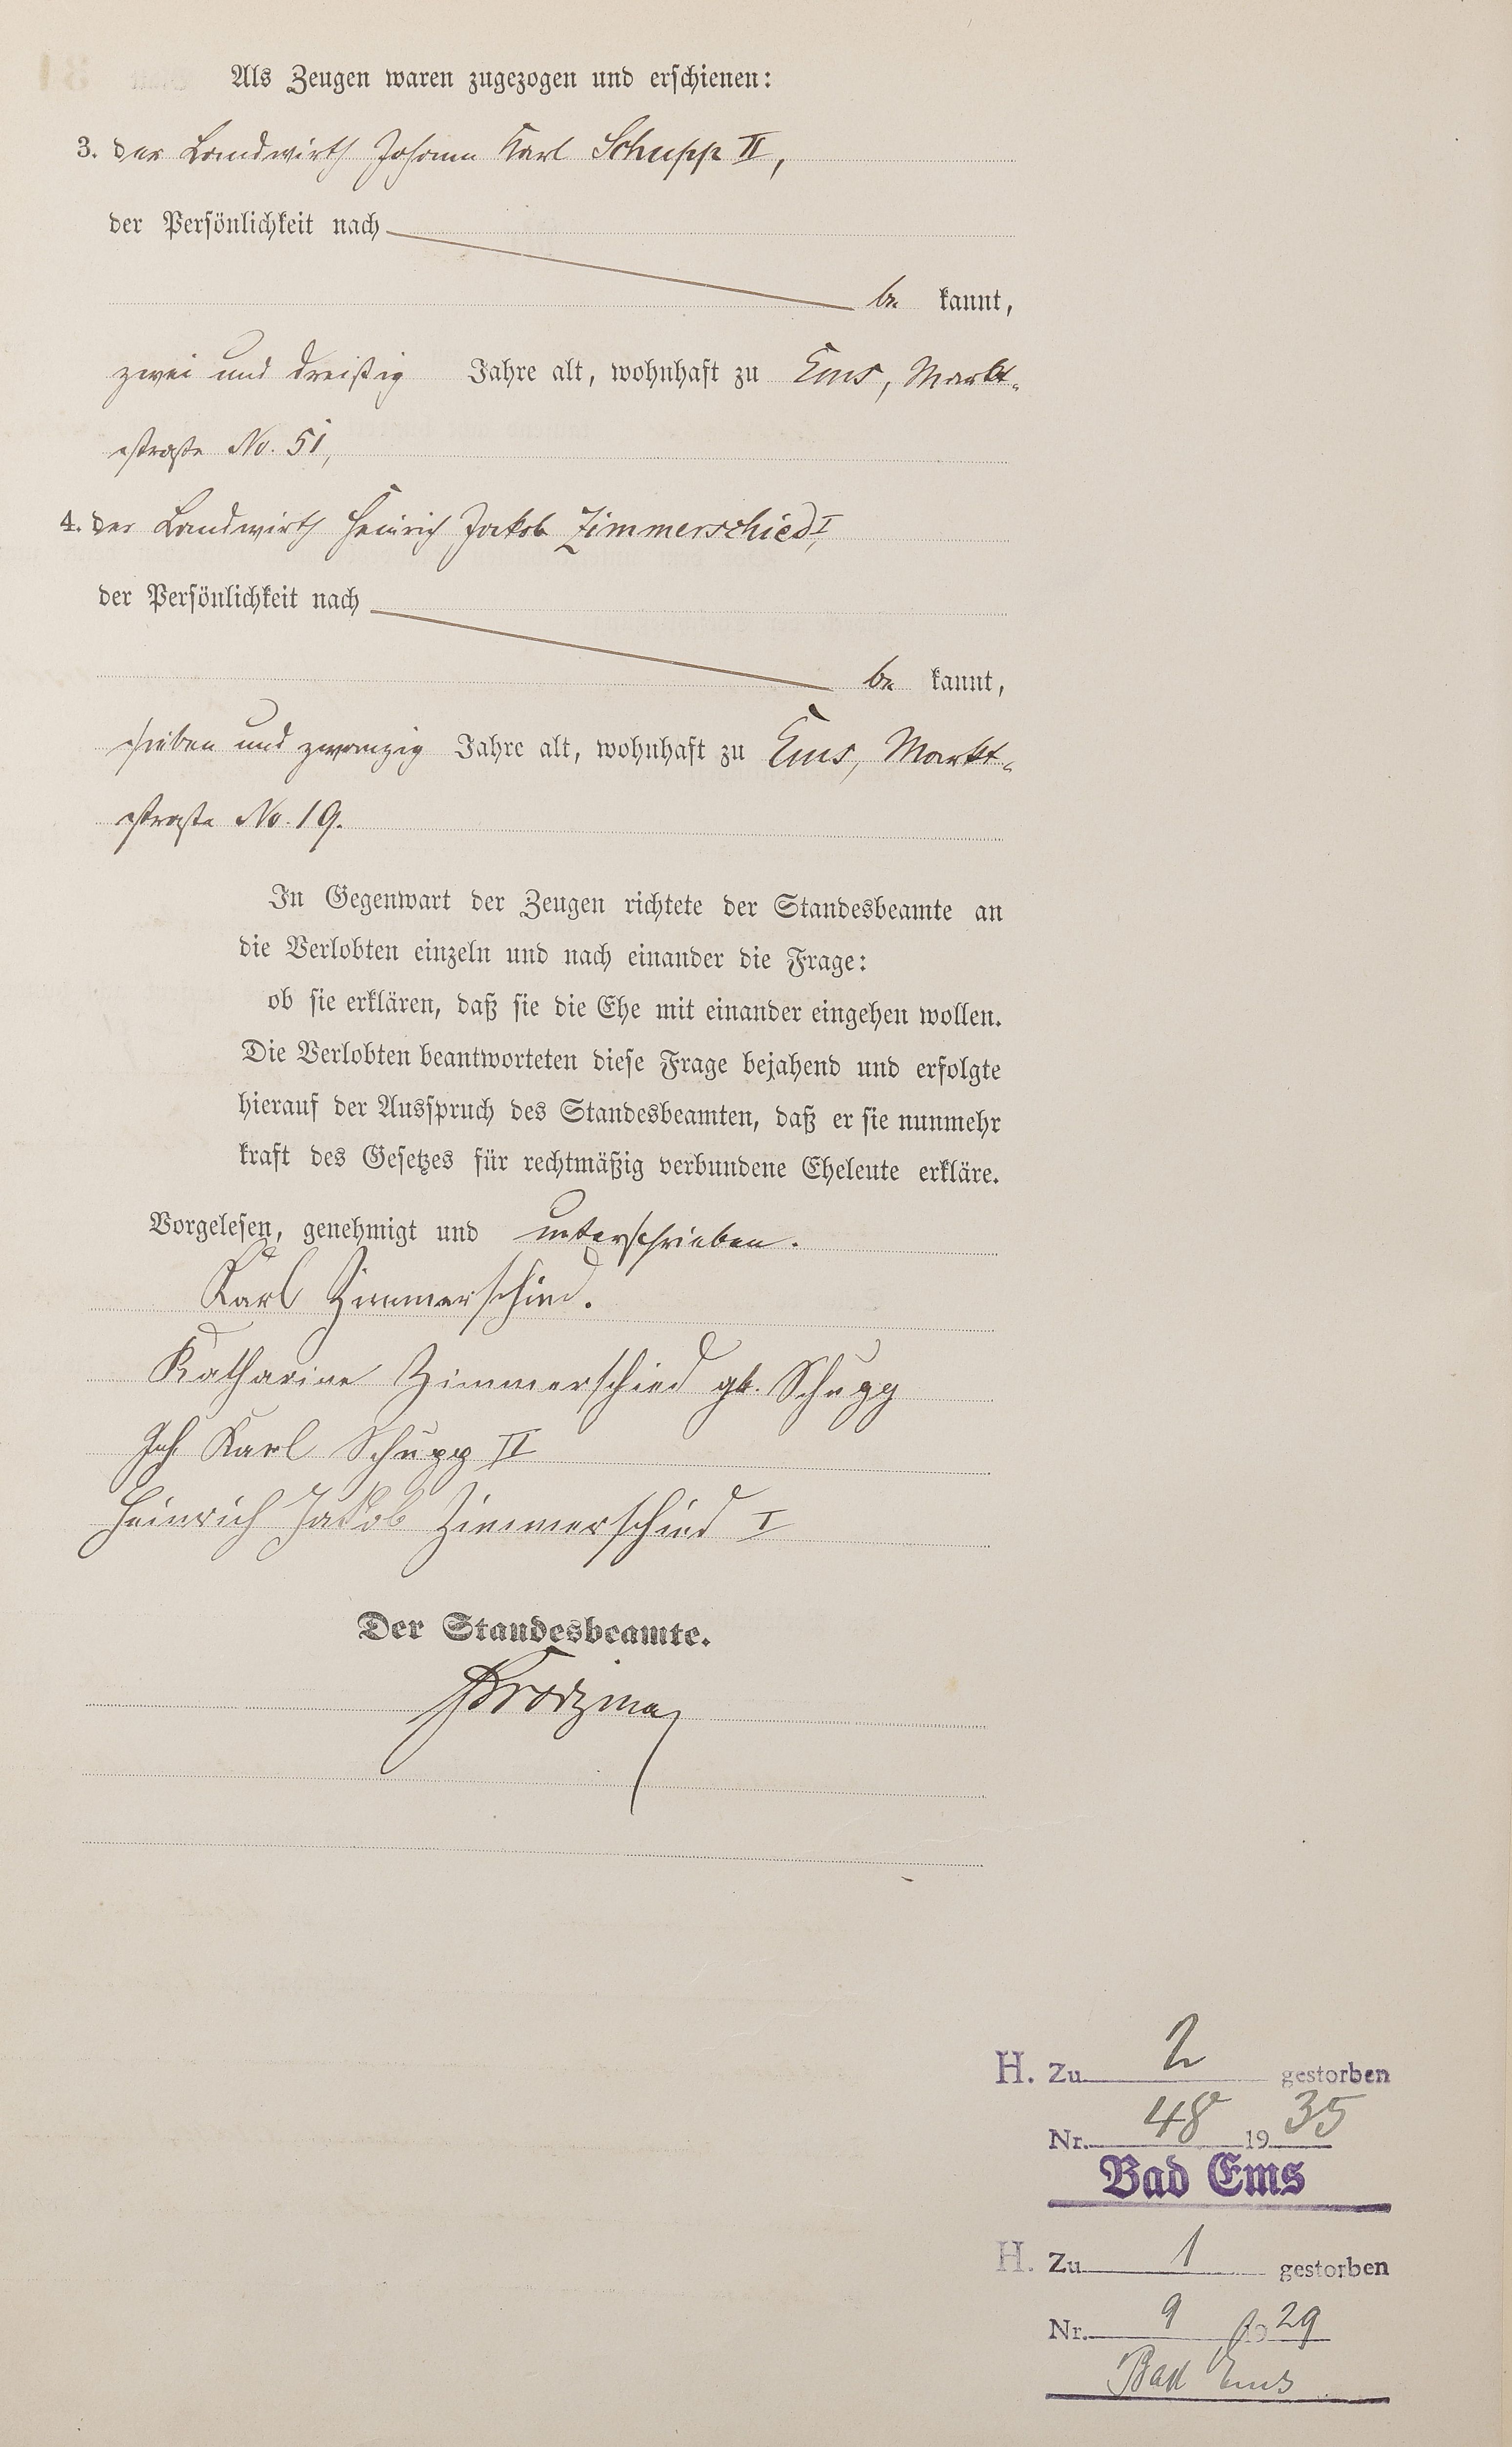 Als Zeugen waren zugezogen und erschienen:
3. der Landwirth Johann Karl Schupp II,
der Persönlichkeit nach
be kannt,
zwei und dreißig Jahre alt, wohnhaft zu Ems, Markt-
straße No. 51,
4. der Landwirth Heinrich Jakob Zimmerschied I,
der Persönlichkeit nach
be kannt,
sieben und zwanzig Jahre alt, wohnhaft zu Ems, Markt-
straße No. 19.
In Gegenwart der Zeugen richtete der Standesbeamte an
die Verlobten einzeln und nach einander die Frage:
ob sie erklären, daß sie die Ehe mit einander eingehen wollen.
Die Verlobten beantworteten diese Frage bejahend und erfolgte
hierauf der Ausspruch des Standesbeamten, daß er sie nunmehr
kraft des Gesetzes für rechtmäßig verbundene Eheleute erkläre.
Vorgelesen, genehmigt und unterschrieben.
Karl Zimmerschied.
Katharine Zimmerschied gb. Schupp
Joh Karl Schupp II
Heinrich Jakob Zimmerschied I
Der Standesbeamte.
H. Zu 2 gestorben
Nr. 48 19 35
Bad Ems
H. Zu 1 gestorben
Nr. 9 1929
Bad Ems